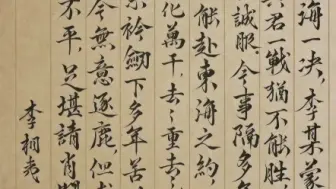 海一决，李某蒙
兴君一戰猶不能勝
誠服，今事隔多年
能赴東海之約，
化萬千去去重去去
衿劒下多年苦
今無意逐鹿，但
不平，足堪請肖
李相夷